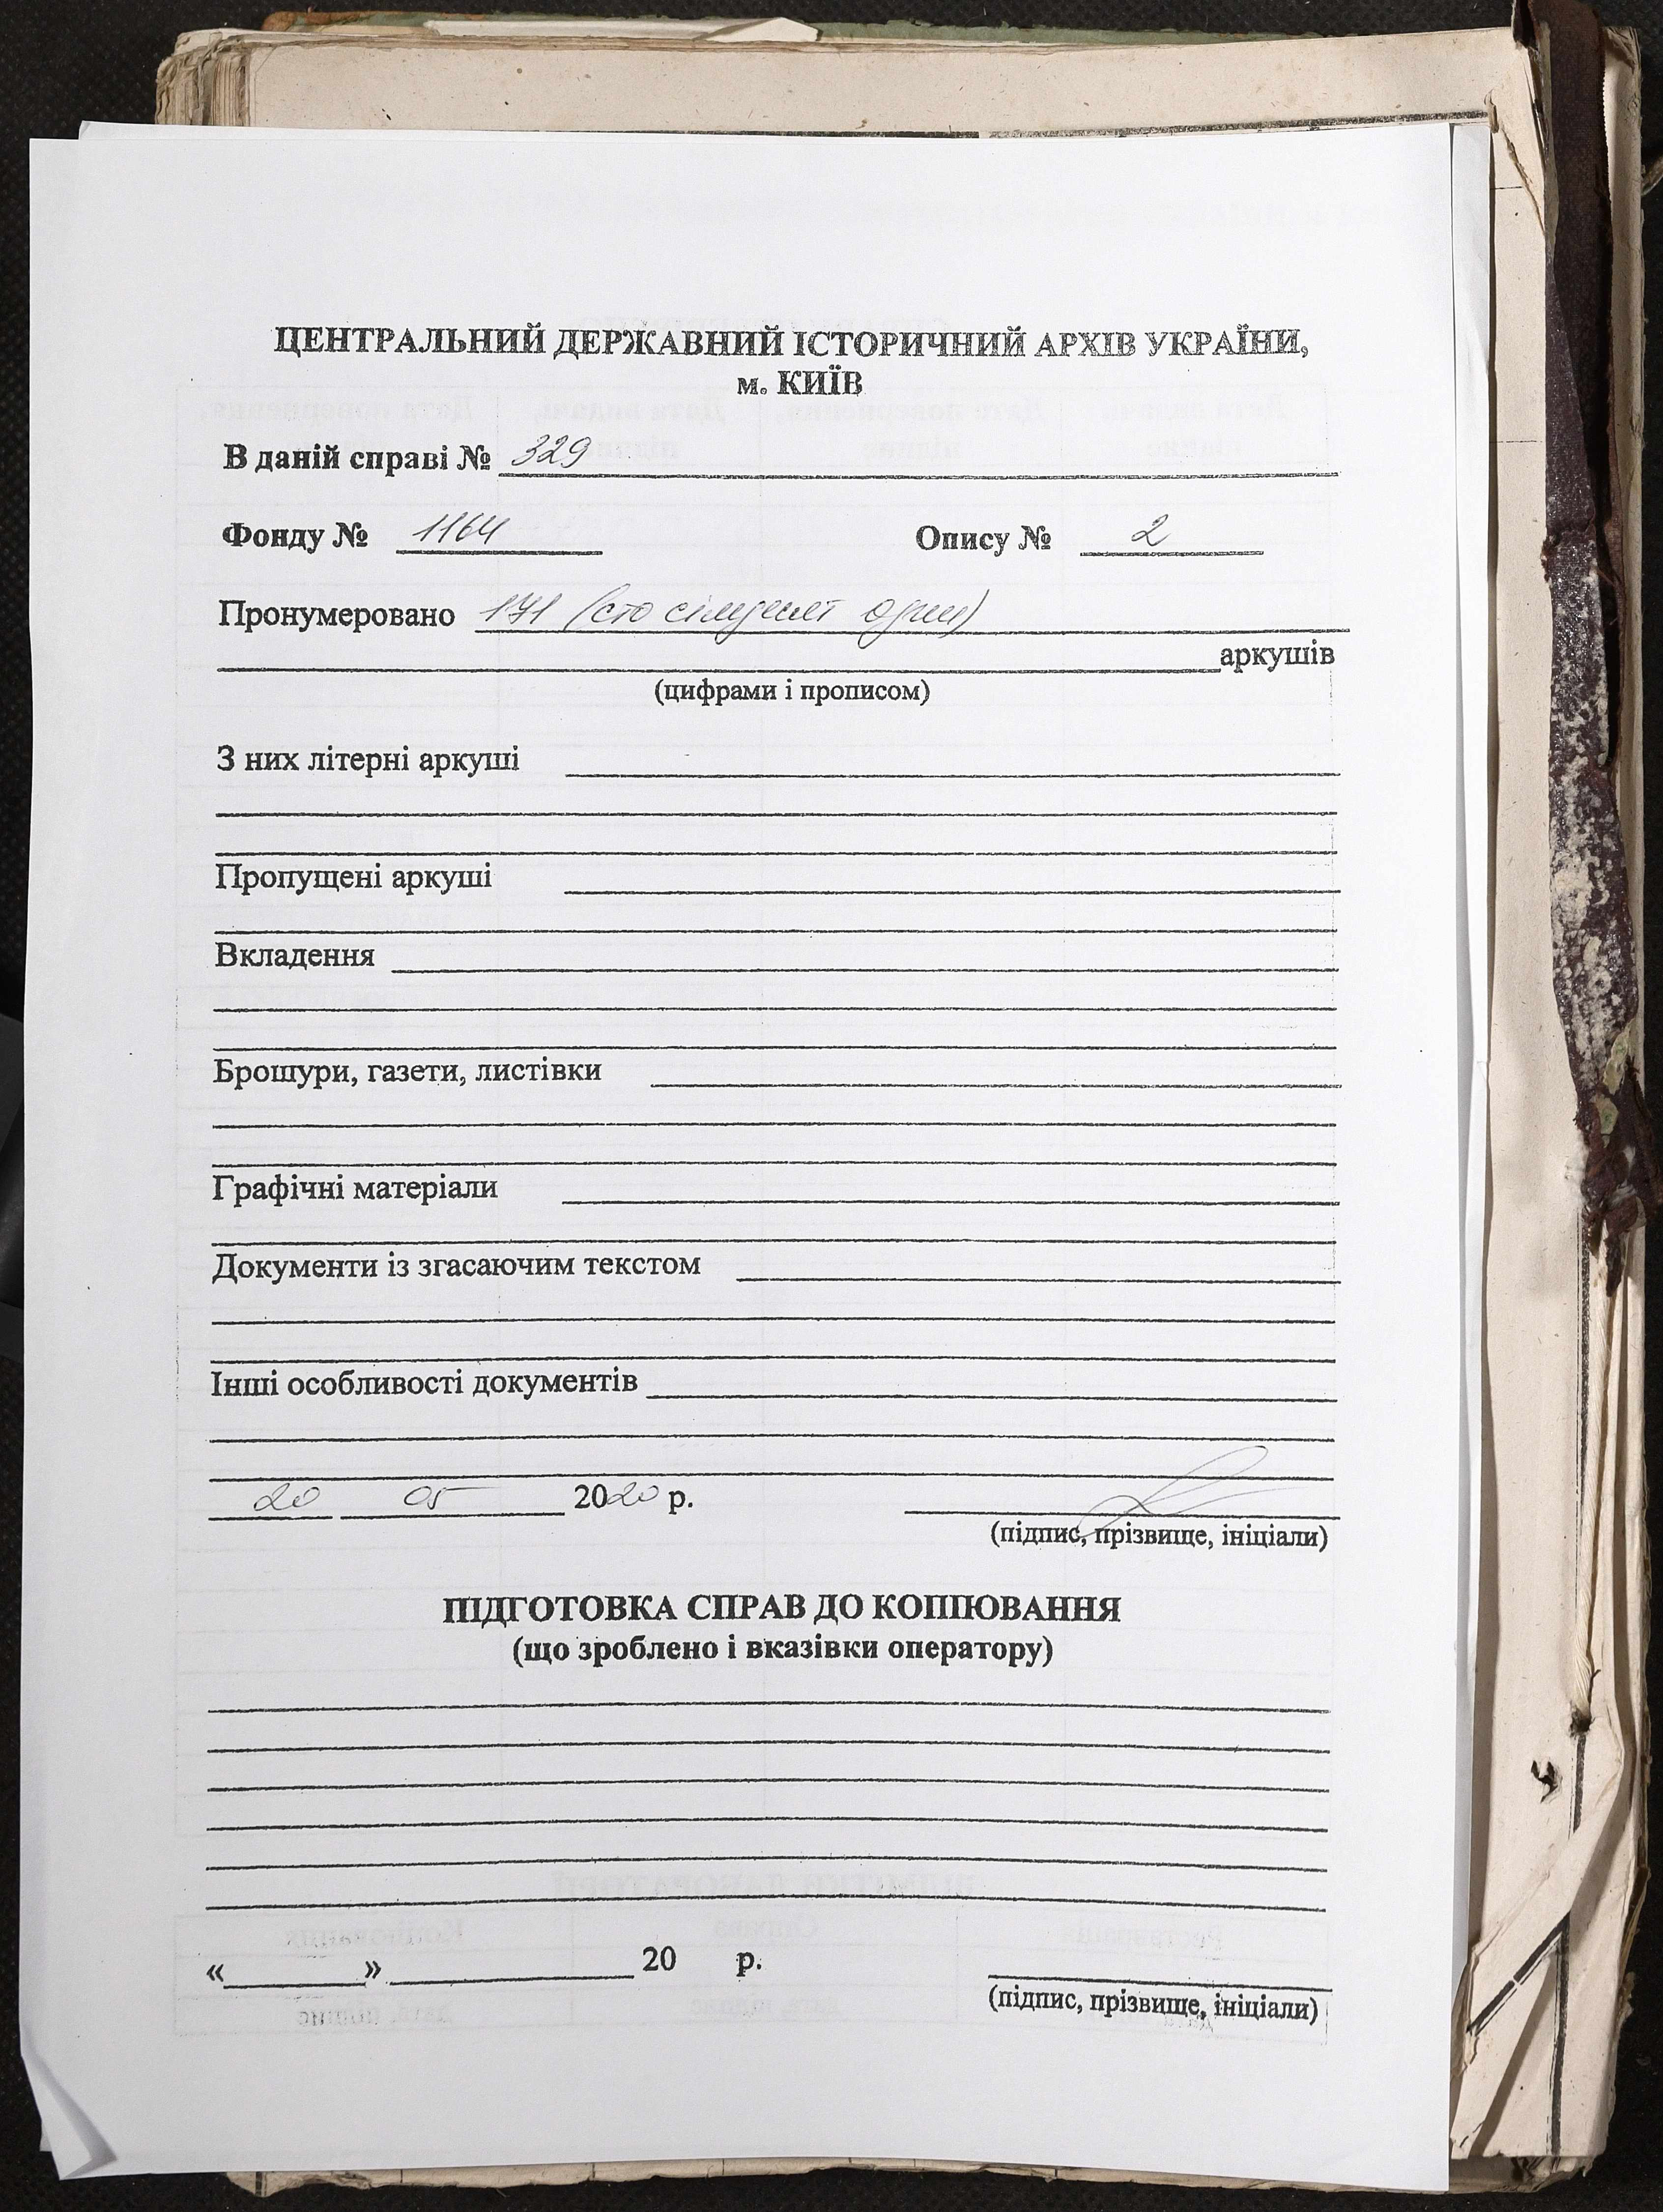 ЦЕНТРАЛЬНИЙ ДЕРЖАВНИЙ ІСТОРИЧНИЙ АРХІВ УКРАЇНИ,
м. КИЇВ
В даній справі № 329
Фонду № 1164 Опису № 2
Пронумеровано 171 (сто сімдесят один)
аркушів
(цифрами і прописом)
З них літерні аркуші
Пропущені аркуші
Вкладення
Брошури, газети, листівки
Графічні матеріали
Документи із згасаючим текстом
Інші особливості документів
20 05 2020 р.
(підпис, прізвище, ініціали)
ПІДГОТОВКА СПРАВ ДО КОПІЮВАННЯ
(що зроблено і вказівки оператору)
«       »        20       р.
(підпис, прізвище, ініціали)